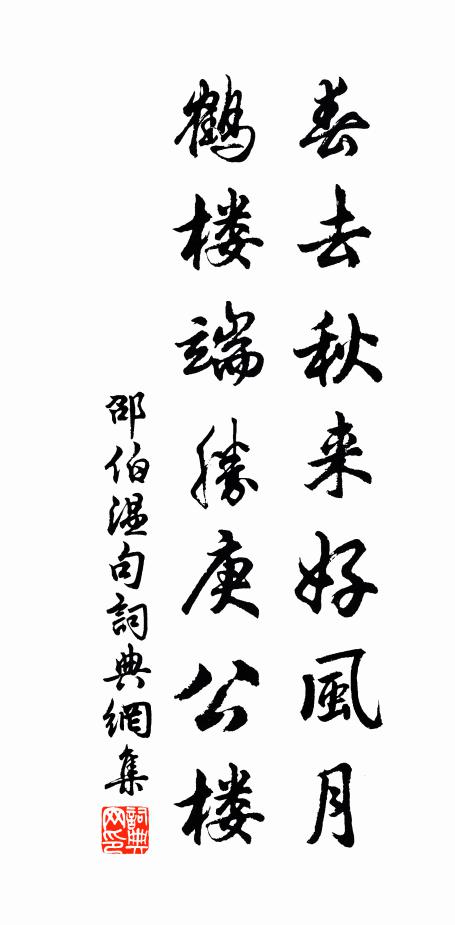 春去秋来好風月
鶴楼端勝庾公楼
邵伯温句詞典網集
詞典网印